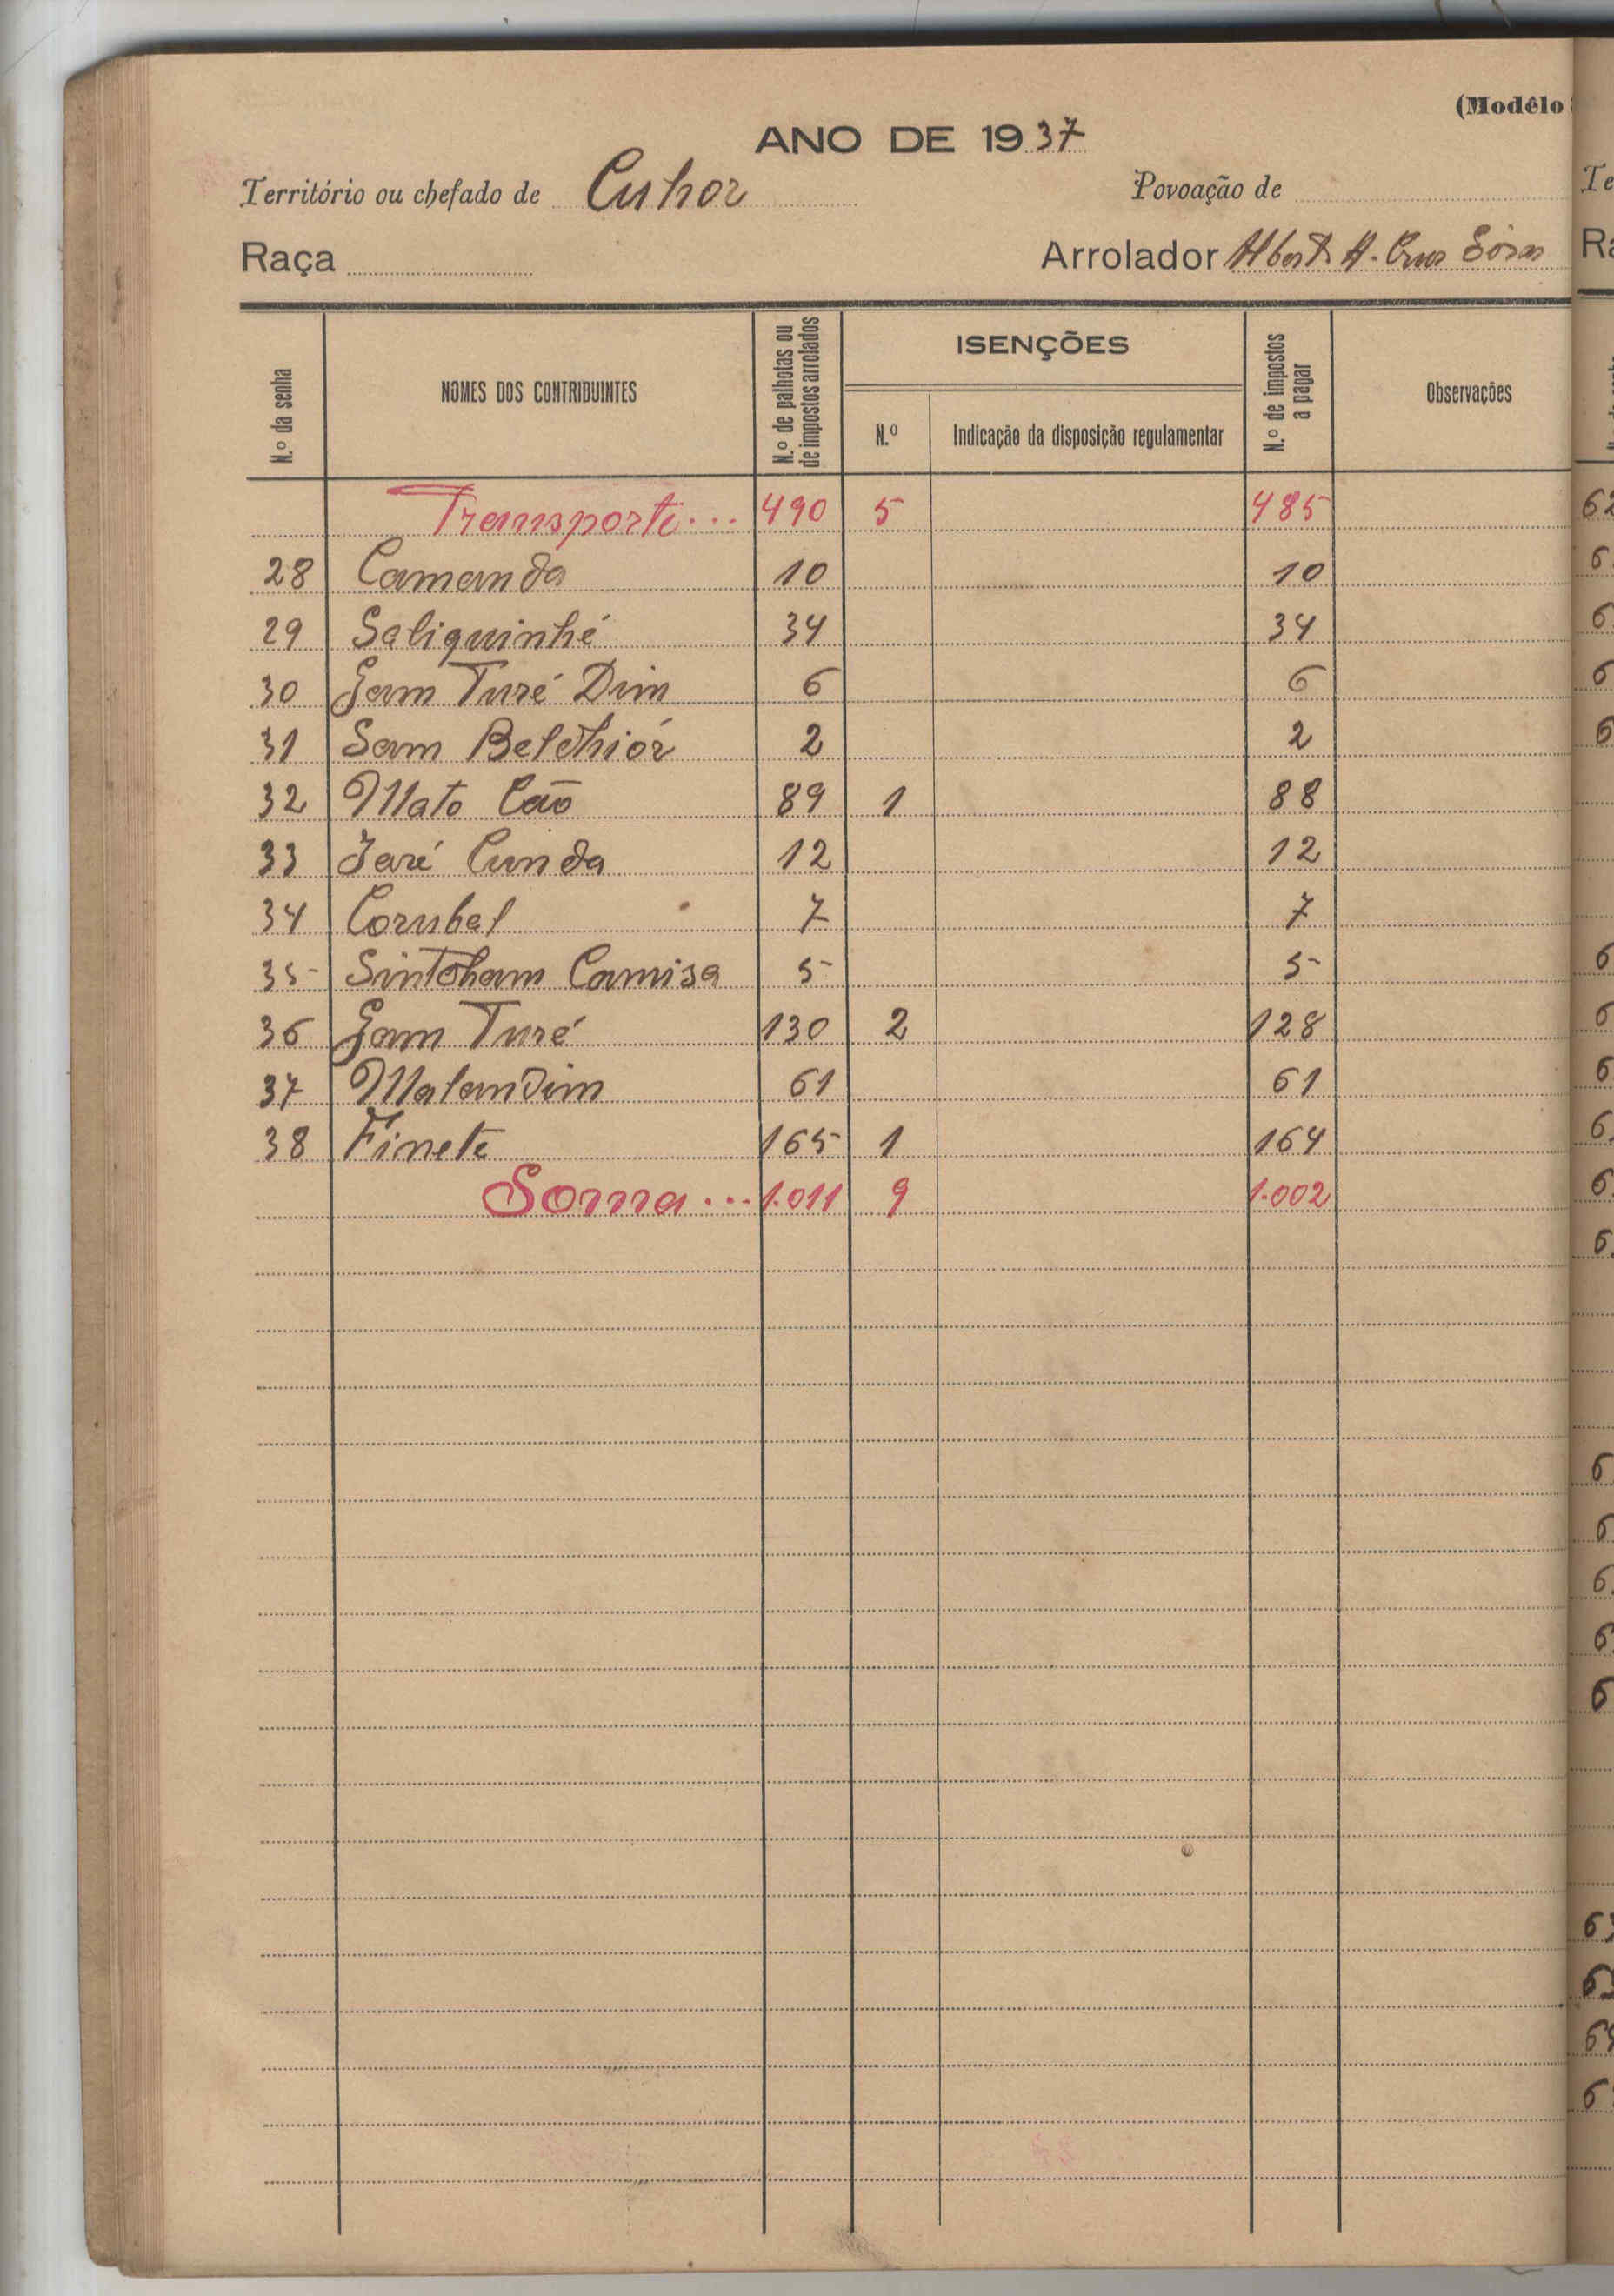 (Modêlo
ANO DE 1937
Território ou chefado de Cuhor Povoação de
Raça Arrolador A. Cruz
N.º da senha NOMES DOS CONTRIBUINTES N.º de palhotas ou de impostos arrolados ISENÇÕES N.º Indicação da disposição regulamentar N.º de impostos a pagar Observações
Transporte... 490 5 485
28 Camanda 10 10
29 Saliquinhé 34 34
30 Gam Turé Dim 6 6
31 Sam Belchiór 2 2
32 Mato Cão 89 1 88
33 Jaré Cunda 12 12
34 Corubal 7 7
35 Sintcham Camisa 5 5
36 Gam Turé 130 2 128
37 Malandim 61 61
38 Finete 165 1 164
Soma... 1.011 9 1.002